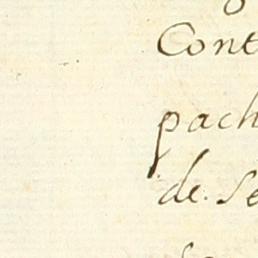 Cont
pach
de. Se